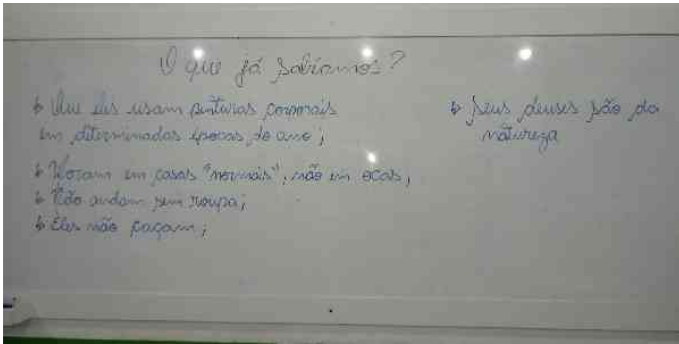 O que já sabíamos?
↳ Que eles usam pinturas corporais
em determinadas épocas do ano;
↳ Moram em casas "normais", não em ocas;
↳ Não andam sem roupa;
↳ Eles não caçam;
↳ Seus deuses são da
natureza